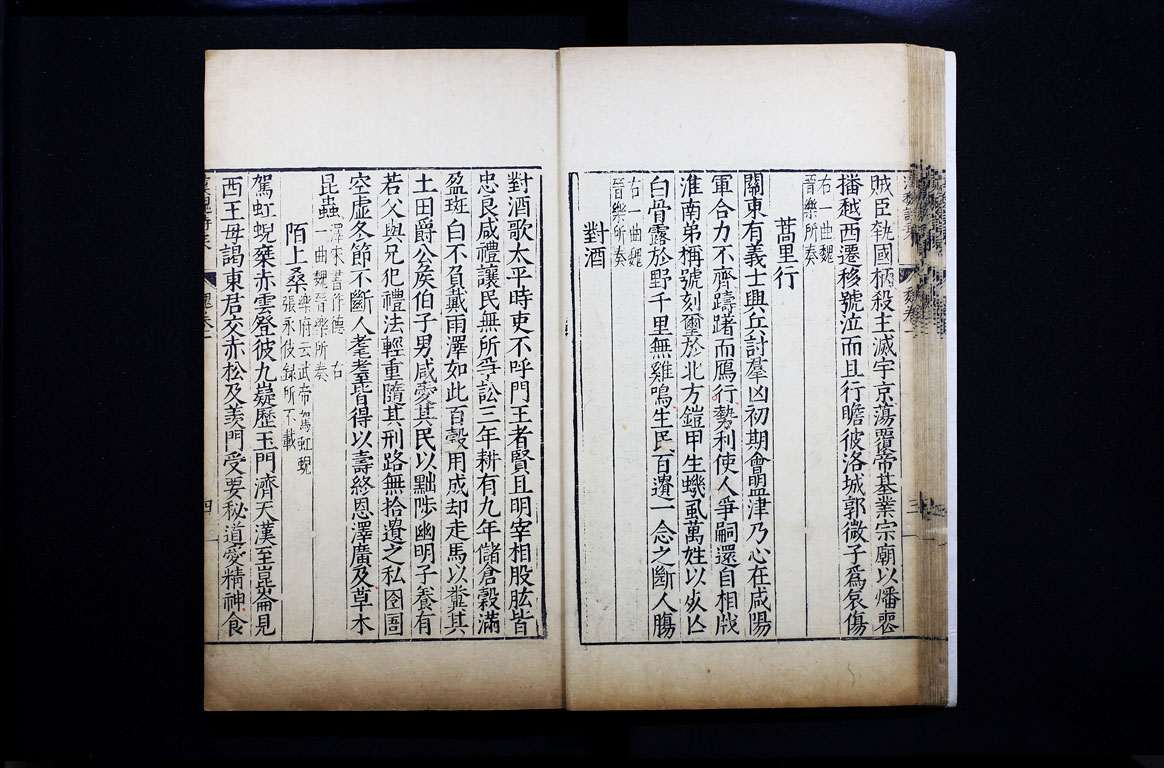 賊臣執國柄殺主滅宇京蕩覆帝基業宗廟以燔喪
播越西遷移號泣而且行瞻彼洛城郭微子爲哀傷
右一曲魏
晉樂所奏
蒿里行
關東有義士興兵討羣凶初期會盟津乃心在咸陽
軍合力不齊躊躇而鴈行勢利使人爭嗣還自相戕
淮南弟稱號刻璽於北方鎧甲生蟣虱萬姓以死亡
白骨露於野千里無雞鳴生民百遺一念之斷人腸
右一曲魏
晉樂所奏
對酒
對酒歌太平時吏不呼門王者賢且明宰相股肱皆
忠良咸禮讓民無所爭訟三年耕有九年儲倉穀滿
盈斑白不負戴雨澤如此百穀用成却走馬以糞其
土田爵公侯伯子男咸愛其民以黜陟幽明子養有
若父與兄犯禮法輕重隨其刑路無拾遺之私囹圄
空虛冬節不斷人耄耋皆得以壽終恩澤廣及草木
昆蟲澤宋書作德 右
一曲魏晉樂所奏
陌上桑樂府云武帝駕虹蜺
張永伎録所不載
駕虹蜺乘赤雲登彼九嶷歷玉門濟天漢至崑崙見
西王母謁東君交赤松及羨門受要秘道愛精神食
魏卷一
四